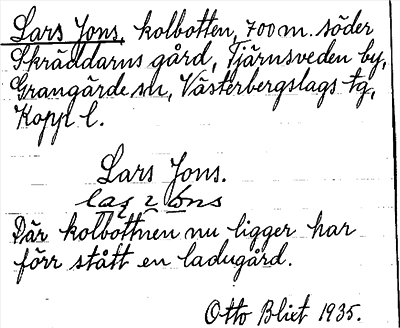 Lars Jons, kolbotten, 700 m. söder
Skräddarns gård, Tjärnsveden by,
Grangärde sn, Västerbergslags tg,
Kopp. l.
Lars Jons.
Där kolbottnen nu ligger har
förr stått en ladugård.
Otto Blixt 1935.